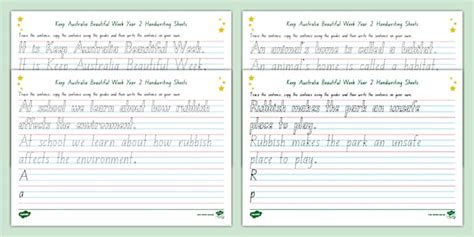 Keep Australia Beautiful Week Year 2 Handwriting Sheets
Trace the sentence, copy the sentence using the guides and then write the sentence on your own.
It is Keep Australia Beautiful Week.
It is Keep Australia Beautiful Week.
Keep Australia Beautiful Week Year 2 Handwriting Sheets
Trace the sentence, copy the sentence using the guides and then write the sentence on your own.
At school we learn about how rubbish
affects the environment.
At school we learn about how rubbish
affects the environment.
A
a
Keep Australia Beautiful Week Year 2 Handwriting Sheets
Trace the sentence, copy the sentence using the guides and then write the sentence on your own.
An animal's home is called a habitat.
An animal's home is called a habitat.
Keep Australia Beautiful Week Year 2 Handwriting Sheets
Trace the sentence, copy the sentence using the guides and then write the sentence on your own.
Rubbish makes the park an unsafe
place to play.
Rubbish makes the park an unsafe
place to play.
R
p